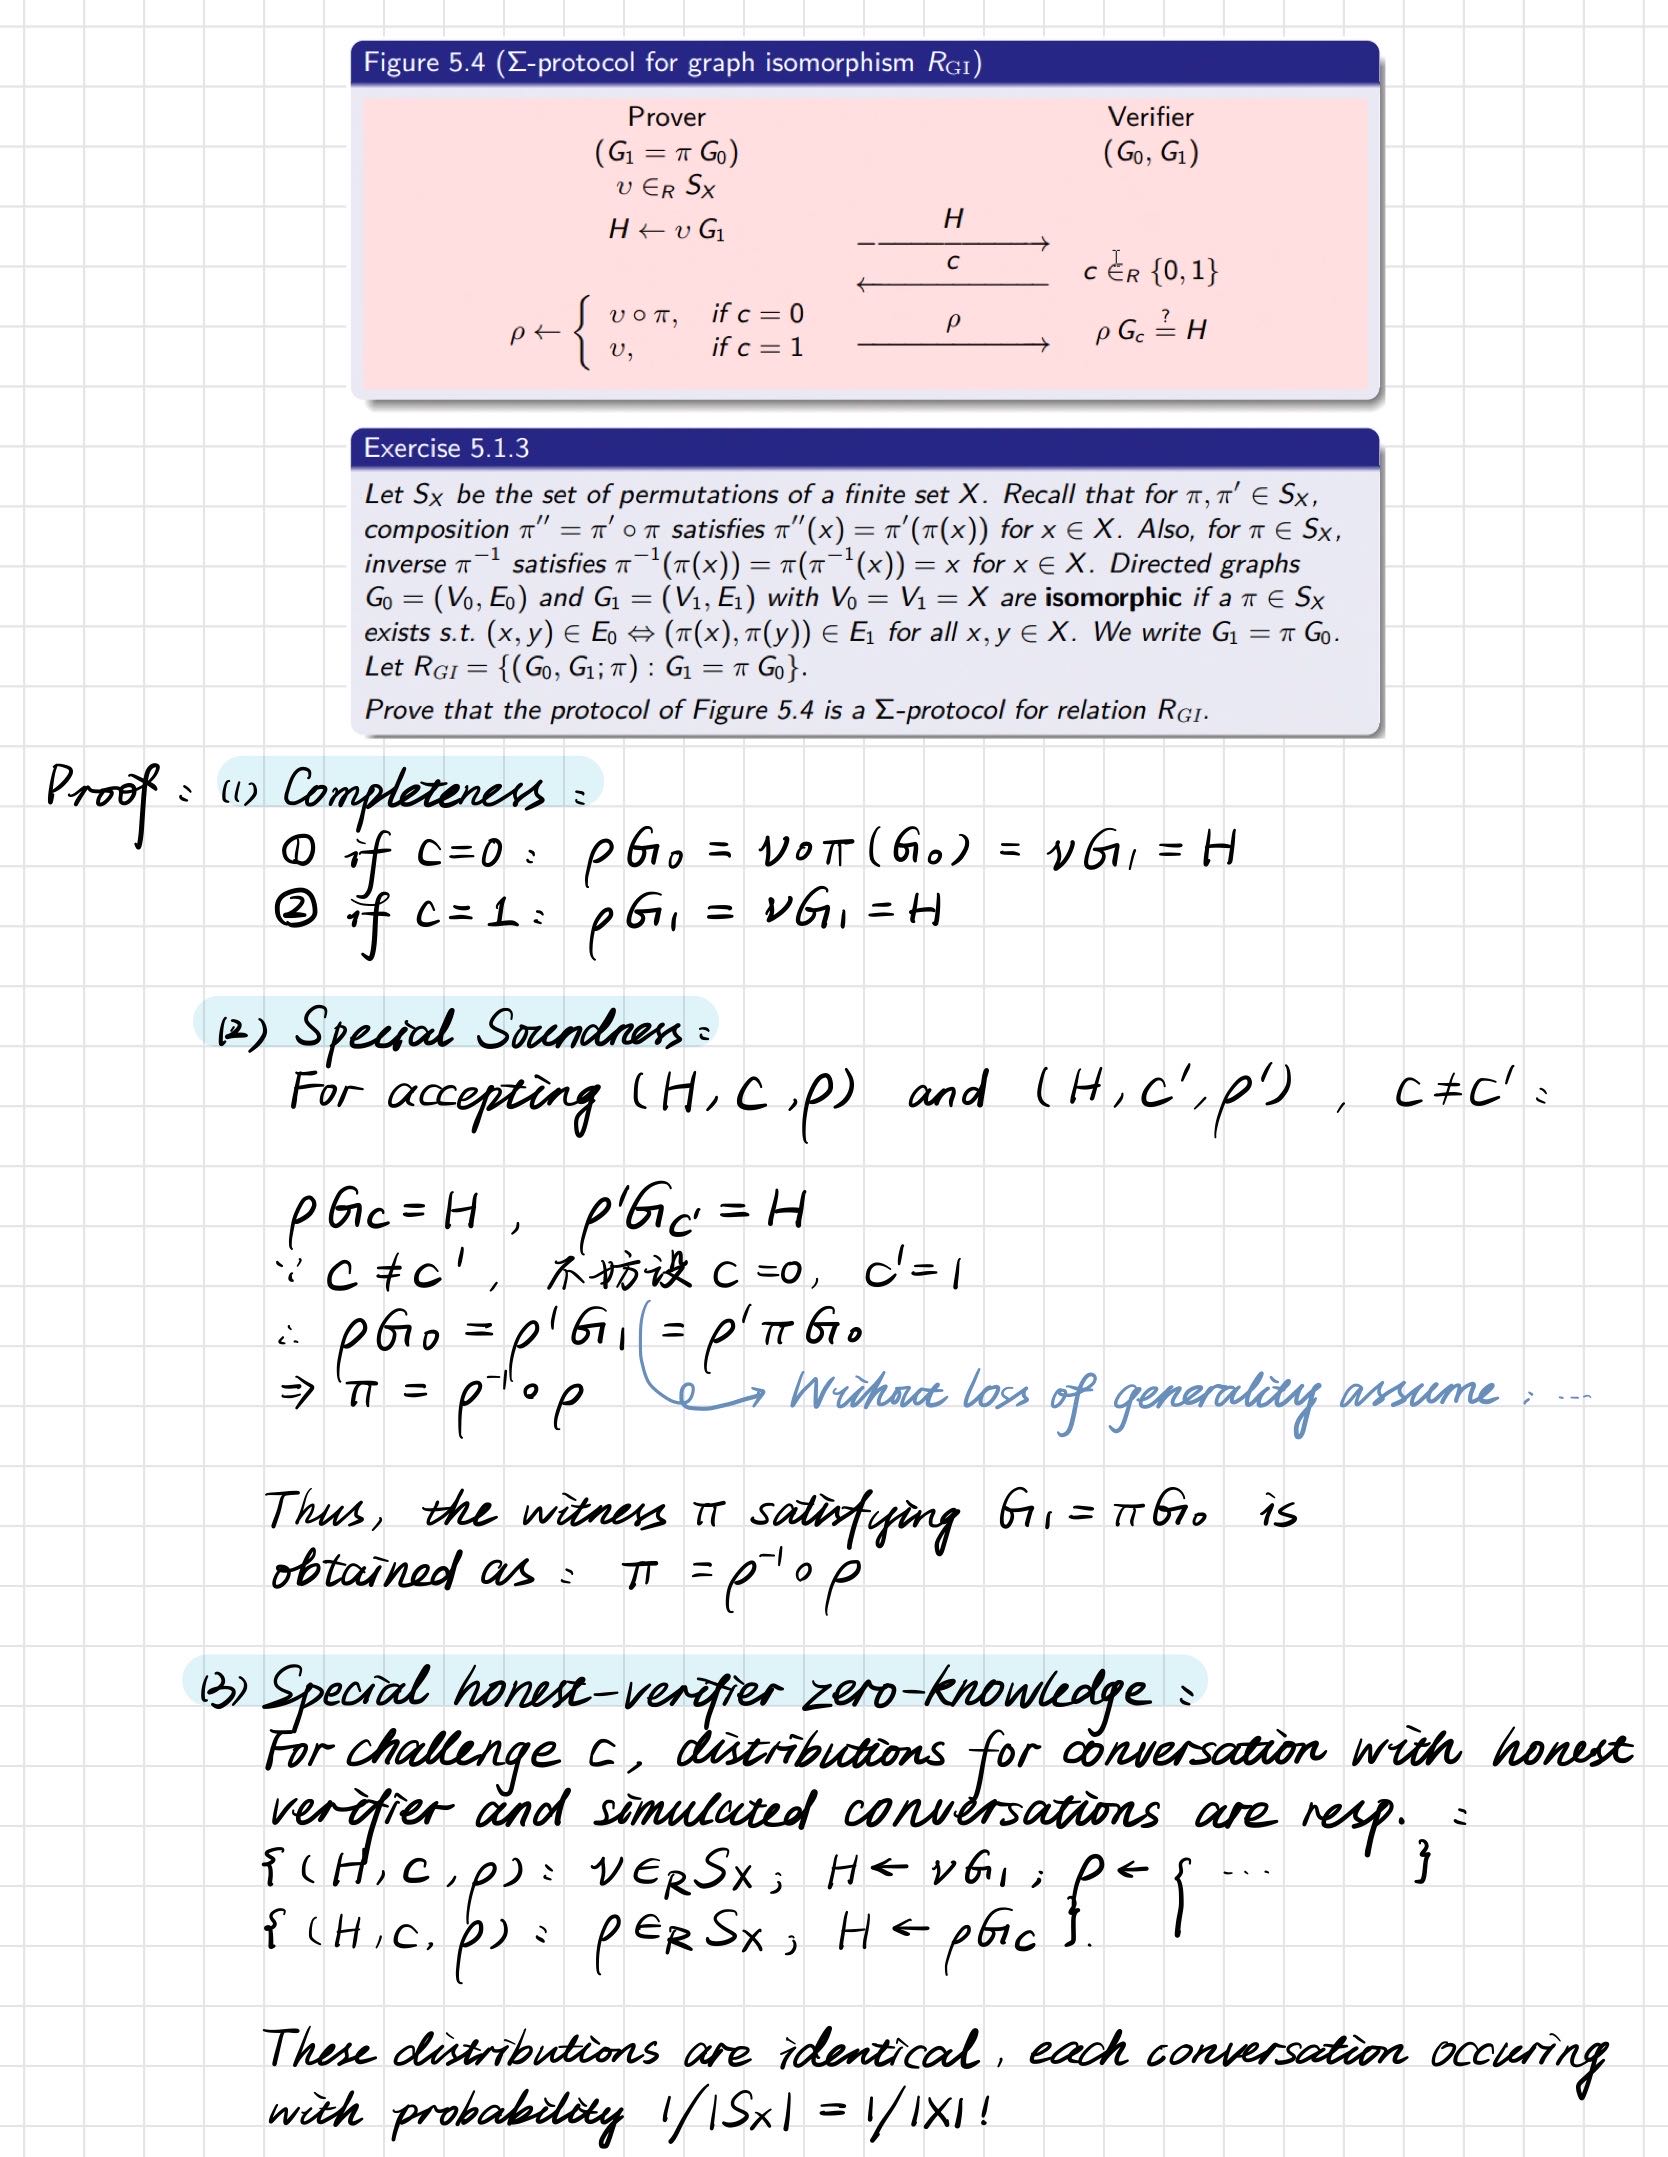 Figure 5.4 (Σ-protocol for graph isomorphism R_GI)
Prover Verifier
(G₁ = π G₀) (G₀, G₁)
υ ∈_R S_X
H ← υ G₁ H
c c ∈_R {0, 1}
ρ ← { υ ∘ π, if c = 0
υ, if c = 1 ρ ρ G_c ≟ H
Exercise 5.1.3
Let S_X be the set of permutations of a finite set X. Recall that for π, π′ ∈ S_X,
composition π″ = π′ ∘ π satisfies π″(x) = π′(π(x)) for x ∈ X. Also, for π ∈ S_X,
inverse π⁻¹ satisfies π⁻¹(π(x)) = π(π⁻¹(x)) = x for x ∈ X. Directed graphs
G₀ = (V₀, E₀) and G₁ = (V₁, E₁) with V₀ = V₁ = X are isomorphic if a π ∈ S_X
exists s.t. (x, y) ∈ E₀ ⇔ (π(x), π(y)) ∈ E₁ for all x, y ∈ X. We write G₁ = π G₀.
Let R_GI = {(G₀, G₁; π) : G₁ = π G₀}.
Prove that the protocol of Figure 5.4 is a Σ-protocol for relation R_GI.
Proof: (1) Completeness:
① if c=0: ρG₀ = ν∘π(G₀) = νG₁ = H
② if c=1: ρG₁ = νG₁ = H
(2) Special Soundness:
For accepting (H, c, ρ) and (H, c′, ρ′), c≠c′:
ρGc = H, ρ′Gc′ = H
∵ c ≠ c′, 不妨设 c=0, c′=1
∴ ρG₀ = ρ′G₁ = ρ′πG₀
⇒ π = ρ⁻¹∘ρ Without loss of generality assume: ...
Thus, the witness π satisfying G₁ = πG₀ is
obtained as: π = ρ⁻¹∘ρ
(3) Special honest-verifier zero-knowledge:
For challenge c, distributions for conversation with honest
verifier and simulated conversations are resp. :
{(H, c, ρ): ν∈_R S_X; H ← νG₁; ρ ← { ... }
{(H, c, ρ): ρ∈_R S_X; H ← ρGc}.
These distributions are identical, each conversation occuring
with probability 1/|S_X| = 1/|X|!